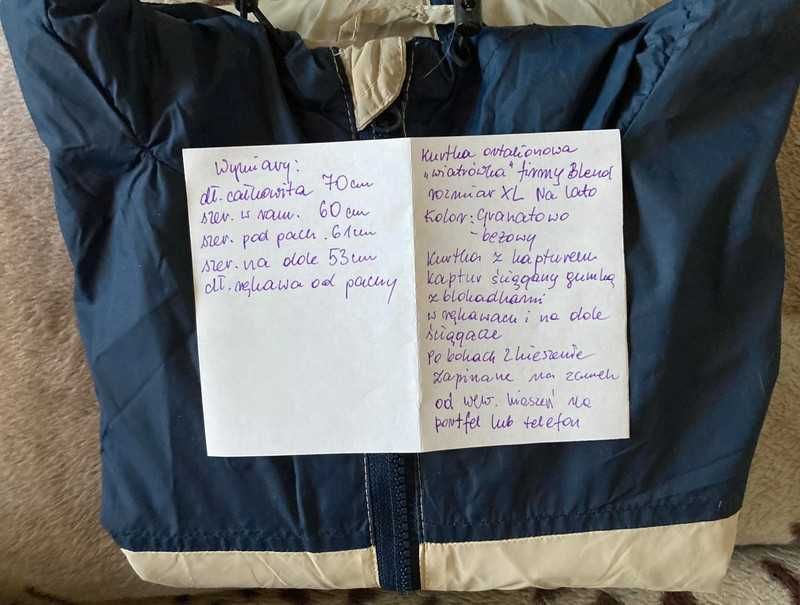 Wymiary:
dł. całkowita 70cm
szer. w ram. 60cm
szer. pod pach. 61cm
szer. na dole 53cm
dł. rękawa od pachy
Kurtka ortalionowa
„wiatrówka" firmy Blend
rozmiar XL Na lato
Kolor: Granatowo
- beżowy
Kurtka z kapturem
kaptur ściągany gumką
z blokadkami
w rękawach i na dole
ściągacze
Po bokach 2 kieszenie
Zapinane na zamek
od wew. kieszeń na
portfel lub telefon